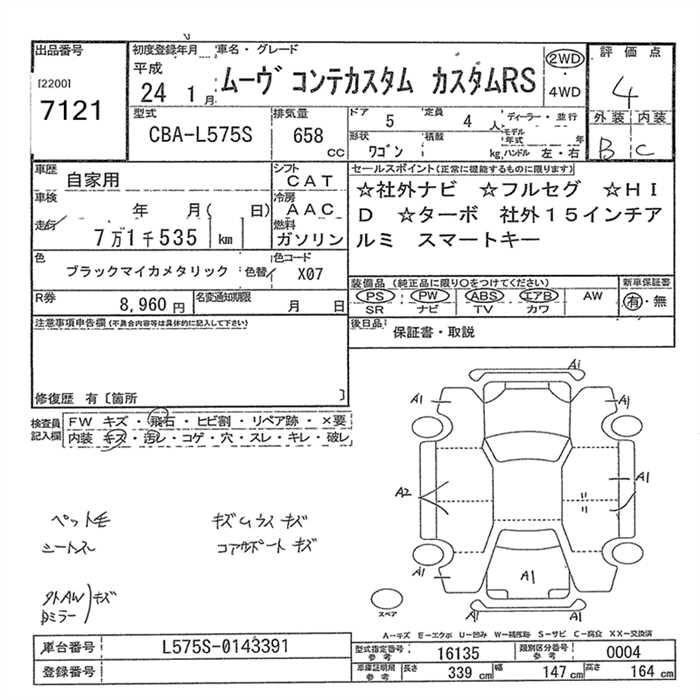 出品番号 初度登録年月 車名・グレード 評価点
[2200] 平成 ムーヴ コンテカスタム カスタムRS 2WD ・ 4WD 4
7121 24 1月
型式 排気量 ドア 5 定員 4人 ディーラー・並行 外装 内装
CBA-L575S 658 CC 形状 ワゴン 積載 kg モデル年式 年 ハンドル 左・右 B C
車歴 自家用 シフト CAT セールスポイント(正常に機能するものに限ります)
車検 年 月( 日) 冷房 AAC ☆社外ナビ ☆フルセグ ☆HI
走行 7万1千535 km 燃料 ガソリン D ☆ターボ 社外15インチア
ルミ スマートキー
色 ブラックマイカメタリック 色替 色コード X07
装備品 (純正品に限り○をつけてください) 新車保証書
R券 8,960円 名変通知期限 月 日 PS PW ABS エアB AW 有・無
SR ナビ TV カワ
注意事項申告欄(不具合内容等は具体的に記入して下さい) 後日品: 保証書・取説
修復歴 有〔箇所 〕
検査員記入欄 FW キズ・飛石・ヒビ割・リペア跡・×要
内装 キズ・汚レ・コゲ・穴・スレ・キレ・破レ
A1
A1 A1
A2 A1
ペット毛 キズムラスキズ
シートスレ コアサポートキズ
A1 A1 A1
外AW
Dミラー )キズ
スペア
A1
A-キズ E-エクボ U-凹み W-補修跡 S-サビ C-腐食 XX-交換済
車台番号 L575S-0143391 型式指定番号 参考 16135 類別区分番号 参考 0004
登録番号 車庫証明用 参考 長さ 339 cm 幅 147 cm 高さ 164 cm